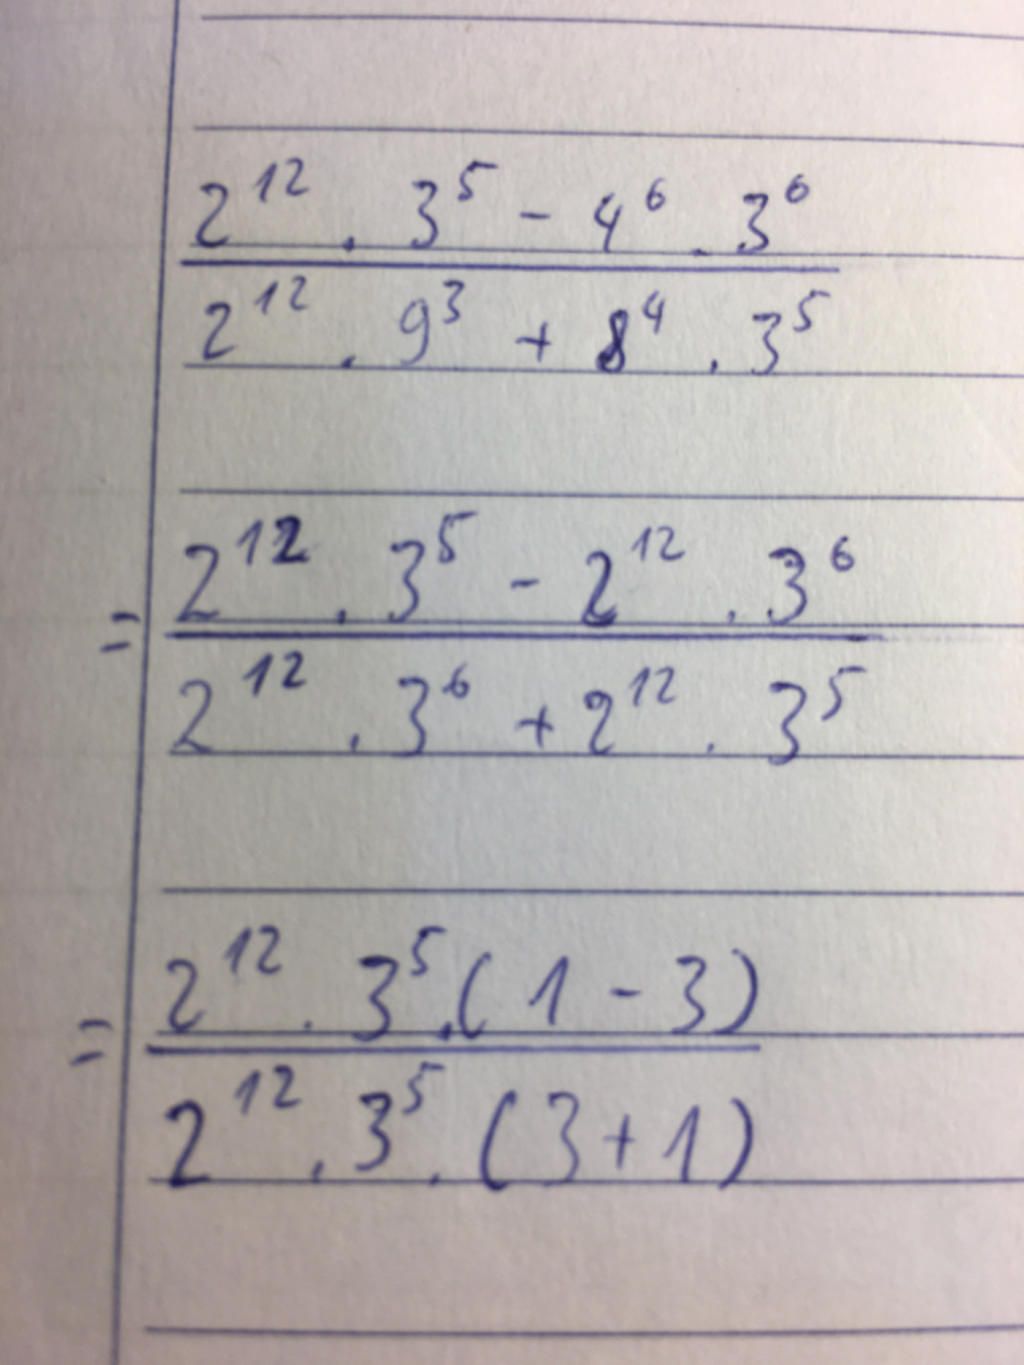 2¹² . 3⁵ - 4⁶ . 3⁶
2¹² . 9³ + 8⁴ . 3⁵
= 2¹² . 3⁵ - 2¹² . 3⁶
2¹² . 3⁶ + 2¹² . 3⁵
= 2¹² . 3⁵ . (1 - 3)
2¹² . 3⁵ . (3 + 1)